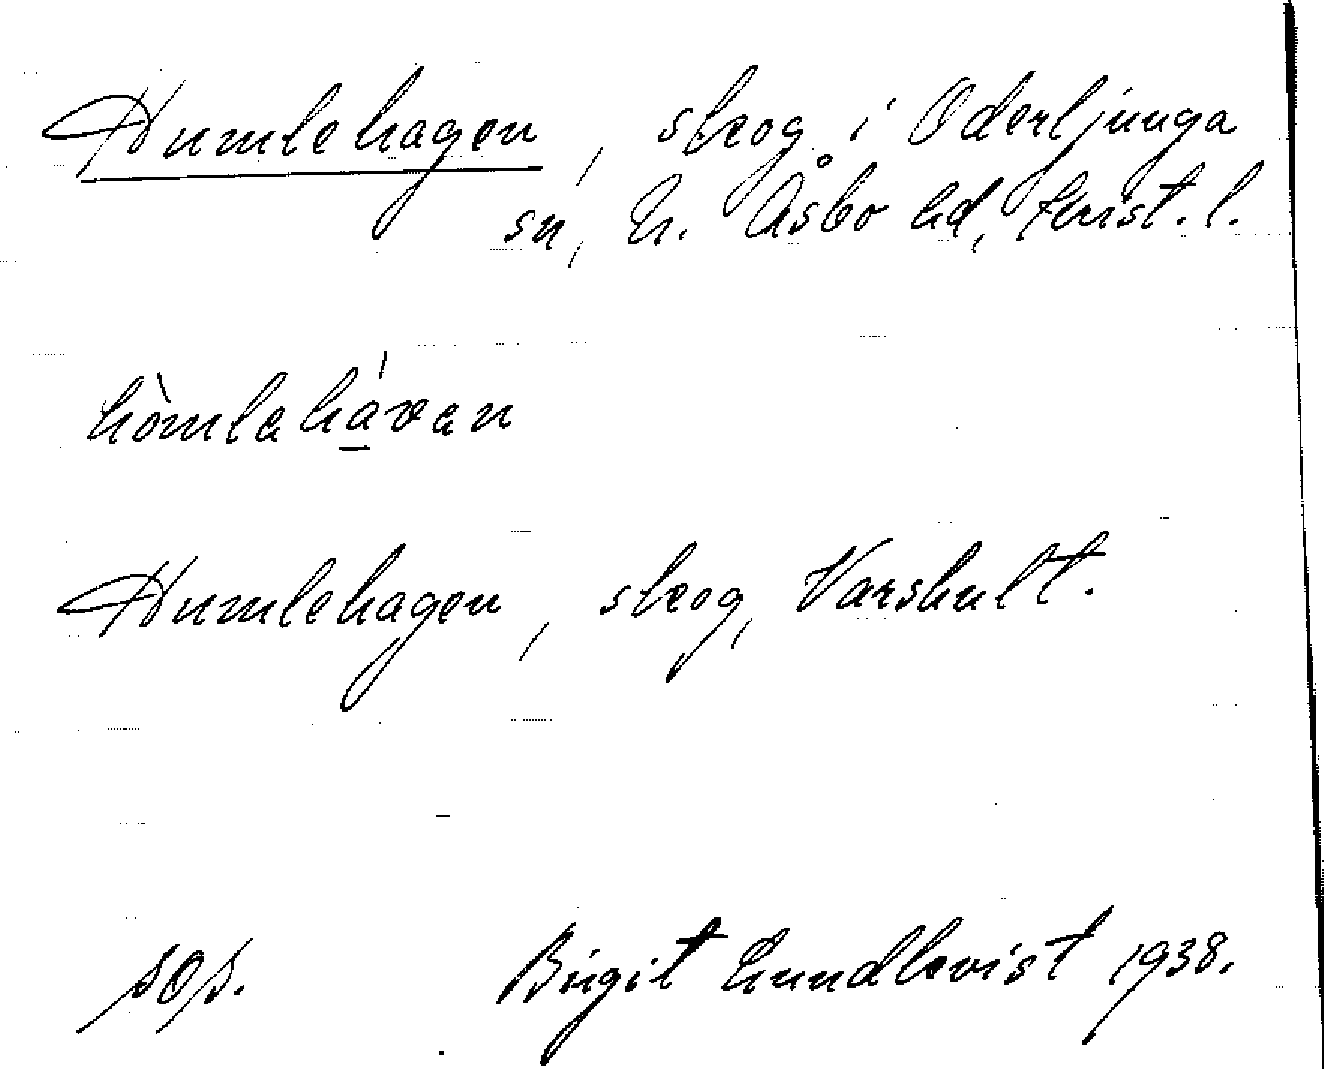 Humlehagen, skog i Oderljunga
sn, N. Åsbo hd, Krist. l.
hòmlahá̱van
Humlehagen, skog, Varshult.
sos. Birgit Lundkvist 1938.